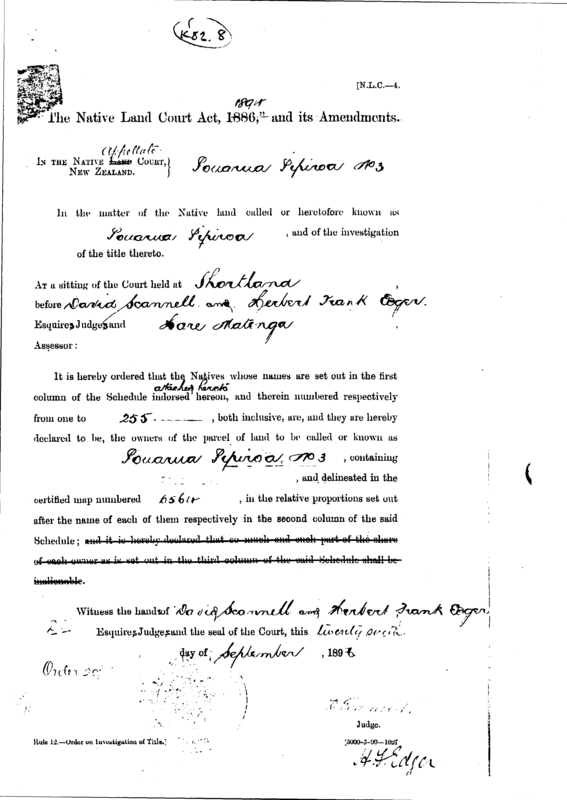 K52. 8
[N.L.C.—4.
1894
The Native Land Court Act, 1886, and its Amendments.
Appellate
IN THE NATIVE LAND COURT, NEW ZEALAND. } Pouarua Pipiroa No 3
In the matter of the Native land called or heretofore known as
Pouarua Pipiroa , and of the investigation
of the title thereto.
AT a sitting of the Court held at Shortland ,
before David Scannell and Herbert Frank Edger.
Esquires Judges and Hare Matenga .
Assessor:
It is hereby ordered that the Natives whose names are set out in the first
attached hereto
column of the Schedule indorsed hereon, and therein numbered respectively
from one to 255 , both inclusive, are, and they are hereby
declared to be, the owners of the parcel of land to be called or known as
Pouarua Pipiroa No 3 , containing
, and delineated in the
certified map numbered 6564 , in the relative proportions set out
after the name of each of them respectively in the second column of the said
Schedule; and it is hereby declared that so much and such part of the share
of each owner as is set out in the third column of the said Schedule shall be
inalienable.
Witness the hands of David Scannell and Herbert Frank Edger
Esquires Judges and the seal of the Court, this twenty
day of September , 1896
Order
Judge.
Rule 12.—Order on Investigation of Title.] [3000-5-90—1027
H. F. Edger